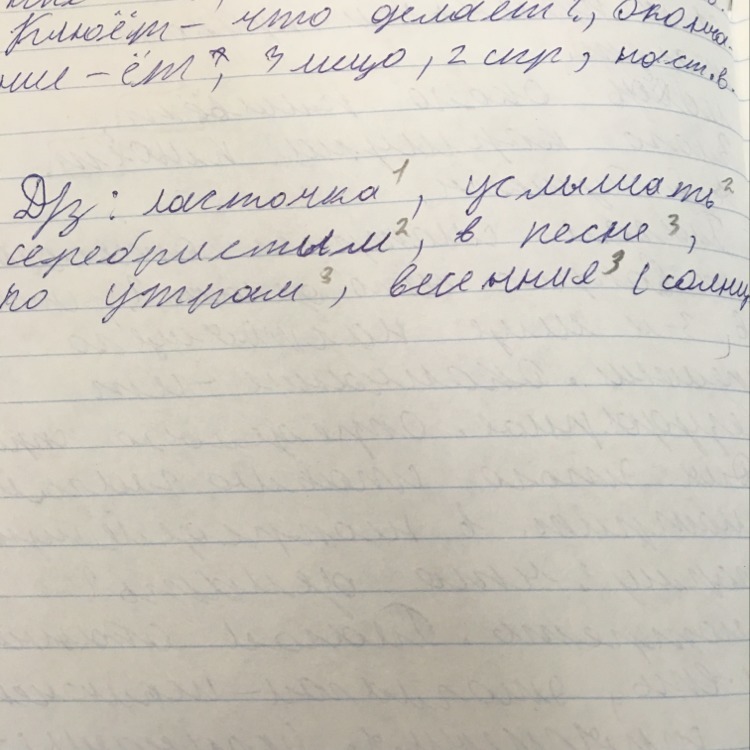 Клюёт – что делает?, оконча-
ние – ёт, 3 лицо, 2 спр, наст. в.
Д/з: ласточка¹, услышать²
серебристым², в песне³,
по утрам³, весенния³ (солнц